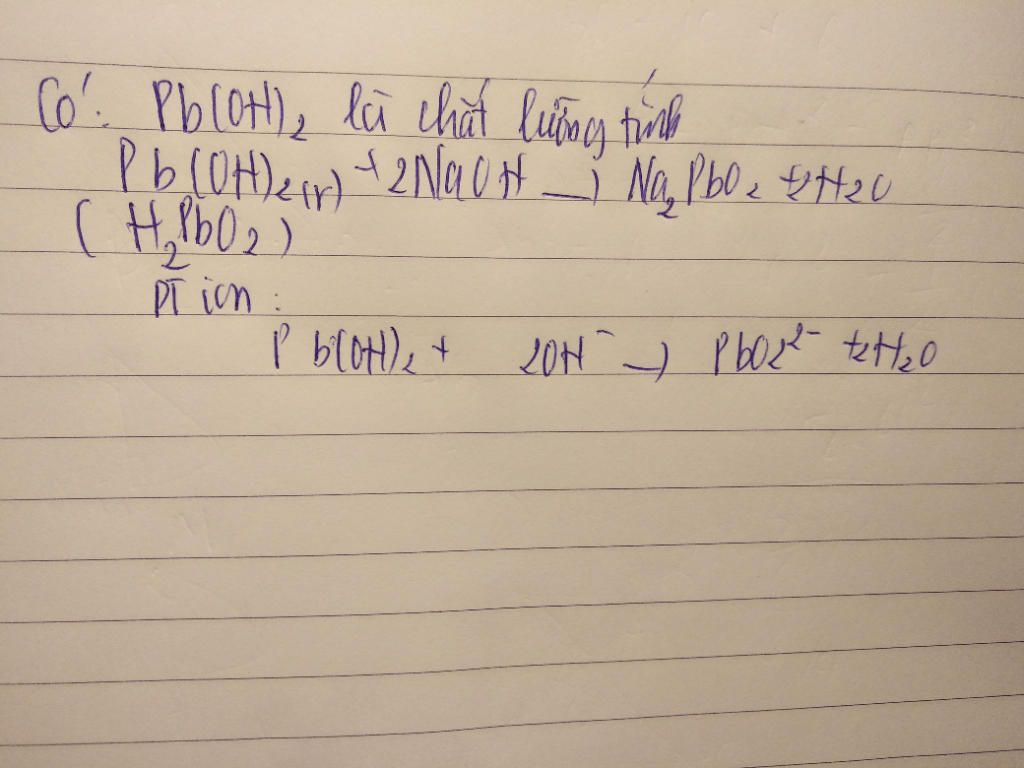 Có: Pb(OH)₂ là chất lưỡng tính
Pb(OH)₂(r) + 2NaOH → Na₂PbO₂ + 2H₂O
(H₂PbO₂)
PT ion:
Pb(OH)₂ + 2OH⁻ → PbO₂²⁻ + 2H₂O